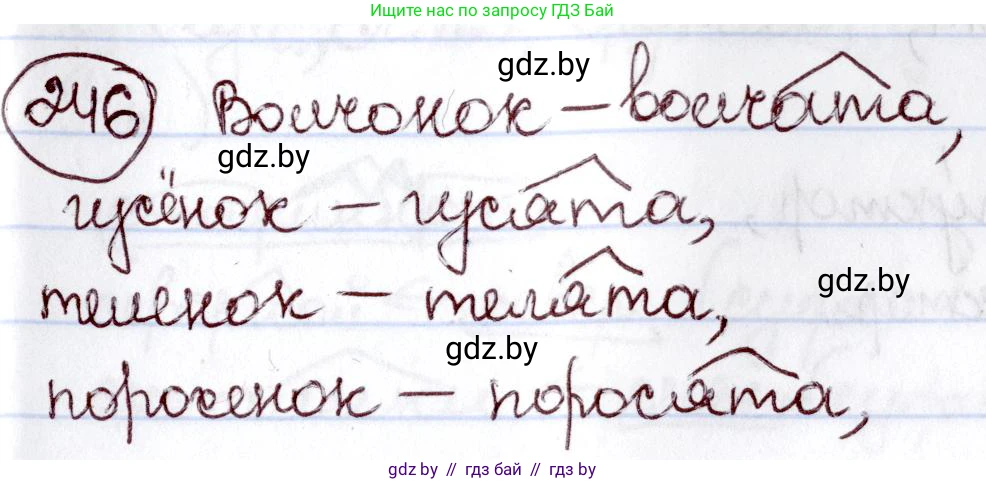 Ищите нас по запросу ГДЗ Бай
gdz.by
246 Волчонок – волчата,
gdz.by
гусёнок – гусята,
gdz.by
теленок – телята,
gdz.by
поросенок – поросята,
gdz.by // гдз бай // гдз by